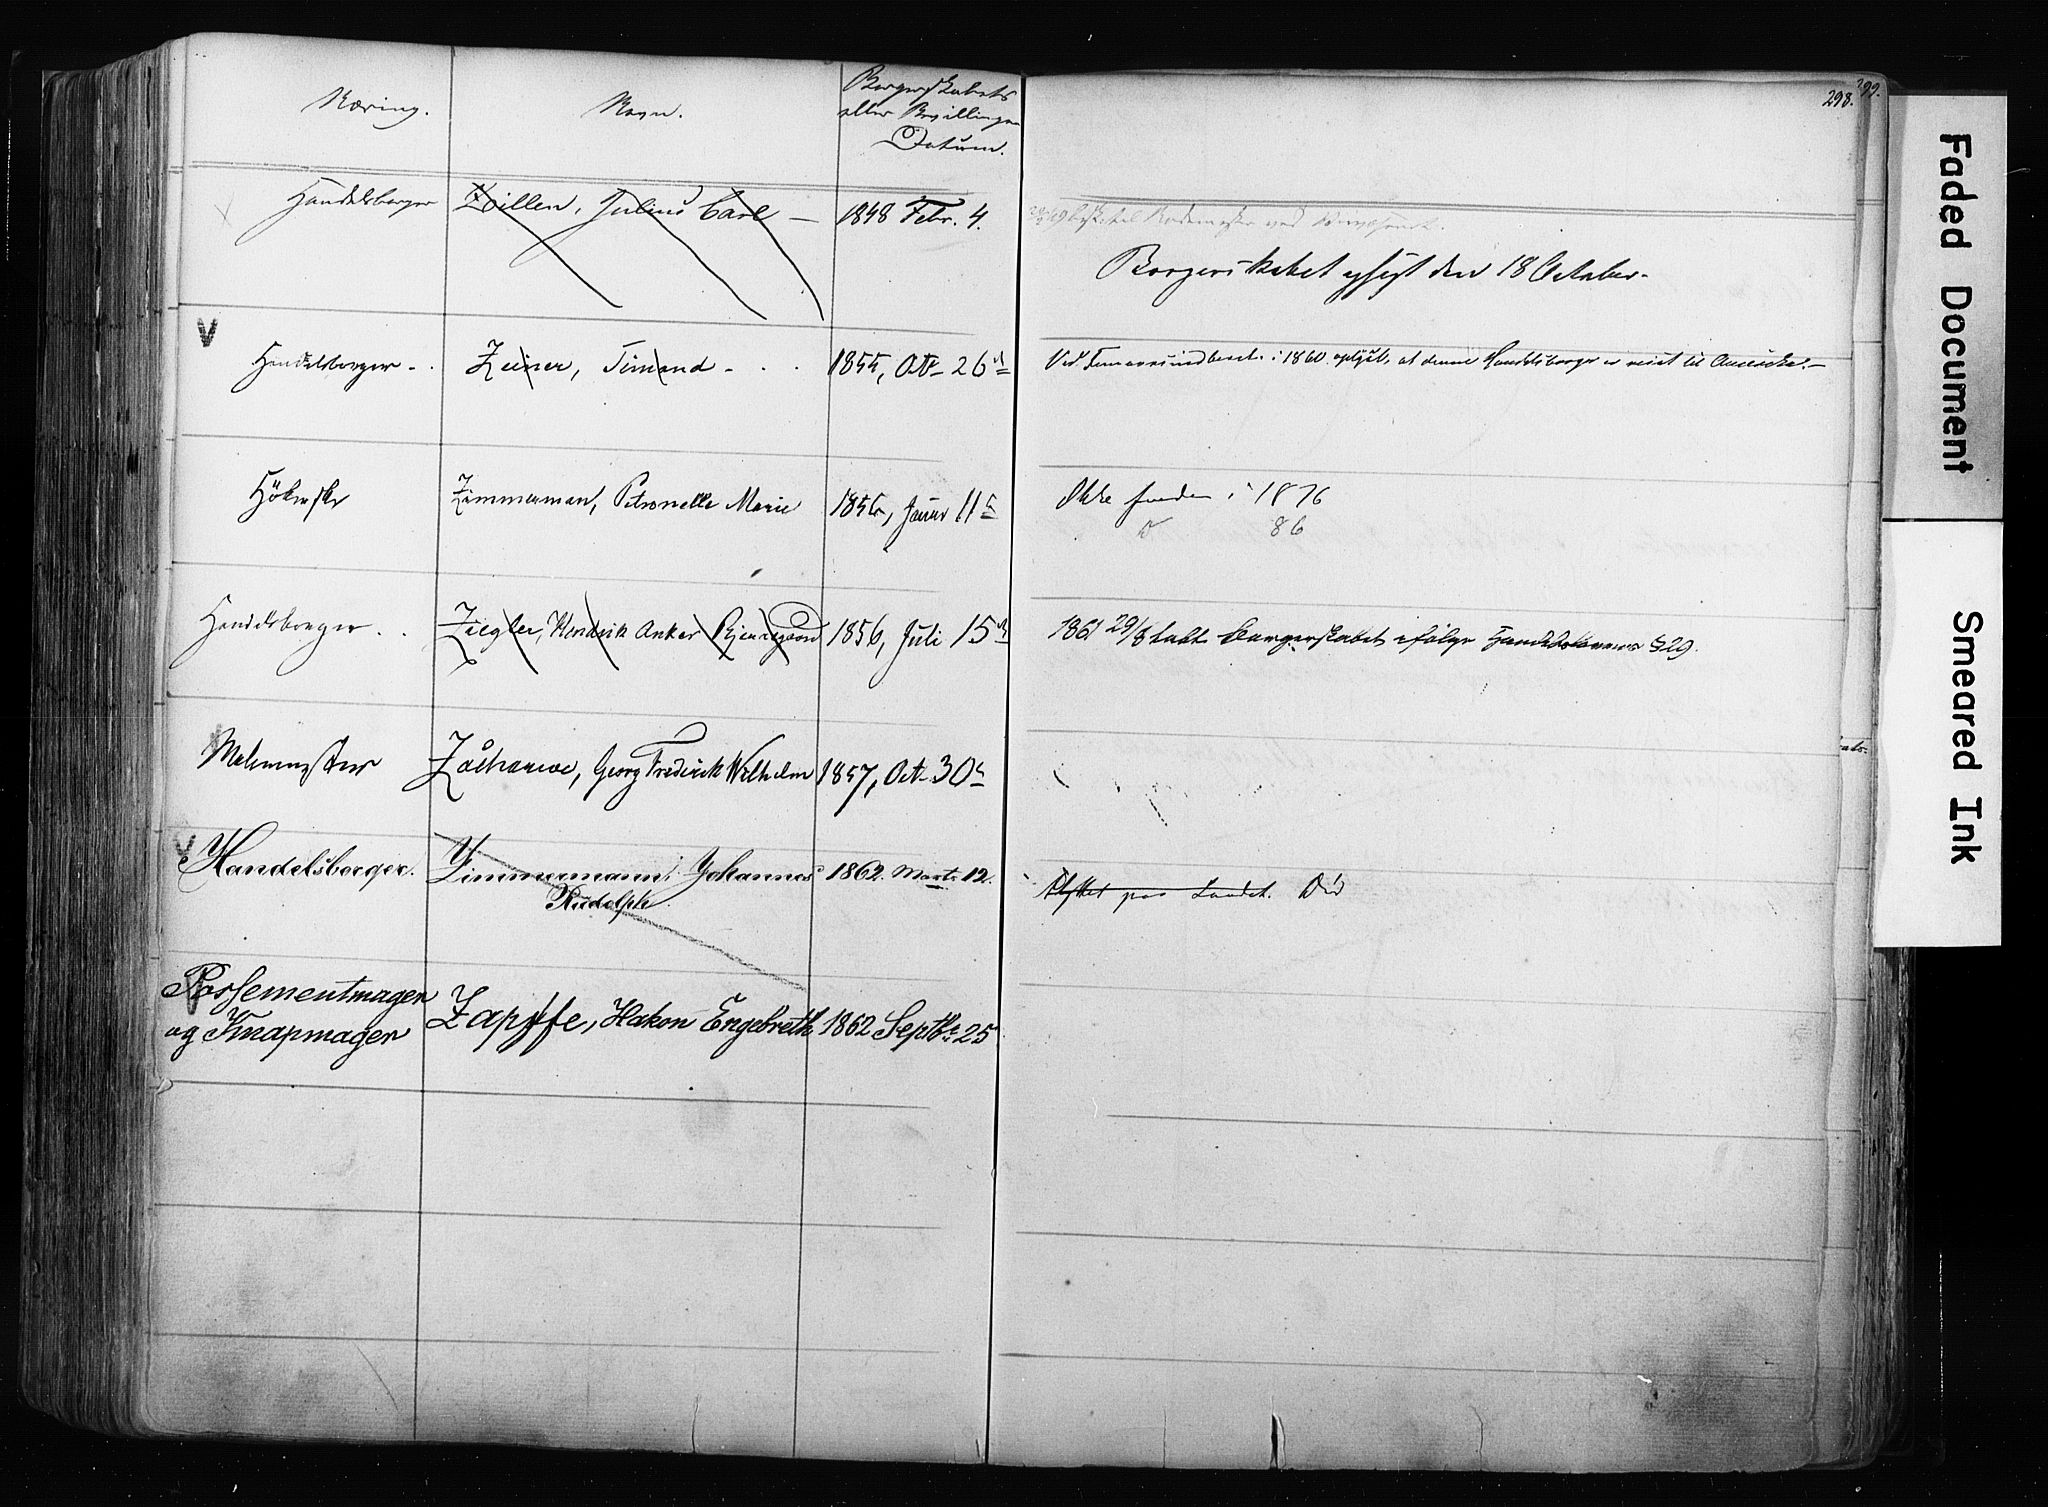 Næring.
Navn.
Borgerskabets
eller Bevillingens
Datum.
298.
299.
Handelsborger Zillen, Julius Carl — 1848 Febr. 4.
Borgerskabet opsagt den 18 October.
V
Handelsborger Zeiner, Timand 1855, Oct. 26de
i 1860 oplyst, at denne Handelsborger er reist til America.
Hökerske Zimmerman, Petronelle Marie 1856, Januar 11te
Ikke funden i 1876
D 86
Handelsborger Ziegler, Hendrik Anker Bjerregaard 1856, Juli 15de
1861 29/8 tabt Borgerskabet ifølge Handelslovens §29.
Malermester Zachariae, Georg Frederick Wilhelm 1857, Oct. 30te
V
Handelsborger. Zimmermann, Johannes 1862. Marts 12.
Rudolph.
Flyttet paa Landet. Död
Possementmager
og Knapmager Zapffe, Hakon Engebreth 1862 Septbr. 25.
Faded Document
Smeared Ink